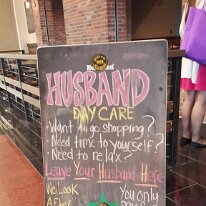 HUSBAND
DAY CARE
• Want to go shopping?
• Need time to yourself?
• Need to relax?
Leave Your Husband Here
We Look
After
You only